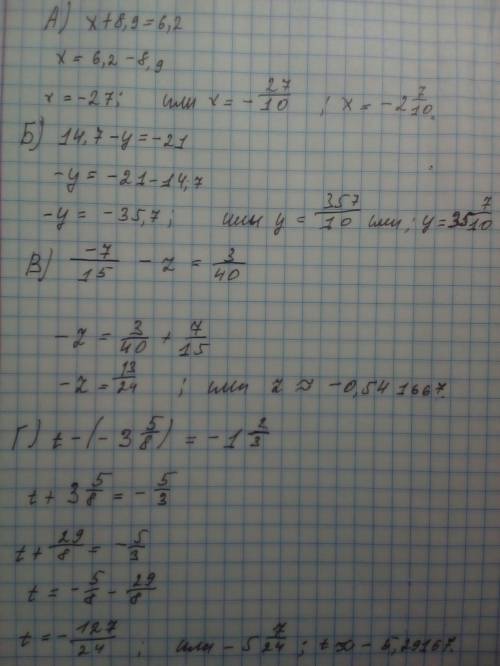 А) x+8,9=6,2
x = 6,2-8,9
x = -27; или x = -27/10 ; x = -2 7/10.
Б) 14,7-y=-21
-y = -21-14,7
-y = -35,7; или y = 357/10 или; y = 35 7/10
В) -7/15 - z = 3/40
-z = 3/40 + 7/15
-z = 13/24 ; или z ≈ -0,541667.
Г) t-(-3 5/8) = -1 2/3
t+3 5/8 = -5/3
t+29/8 = -5/3
t = -5/8 - 29/8
t = -127/24 ; или -5 7/24 ; t≈ -5,29167.